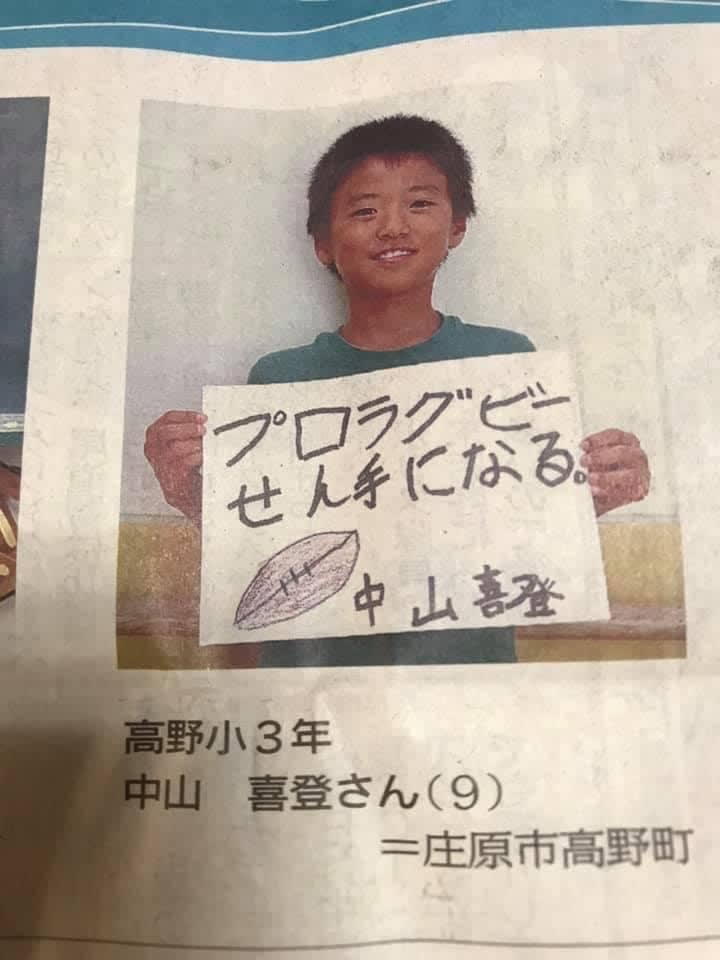 プロラグビー
せん手になる。
中山喜登
高野小3年
中山　喜登さん(9)
＝庄原市高野町